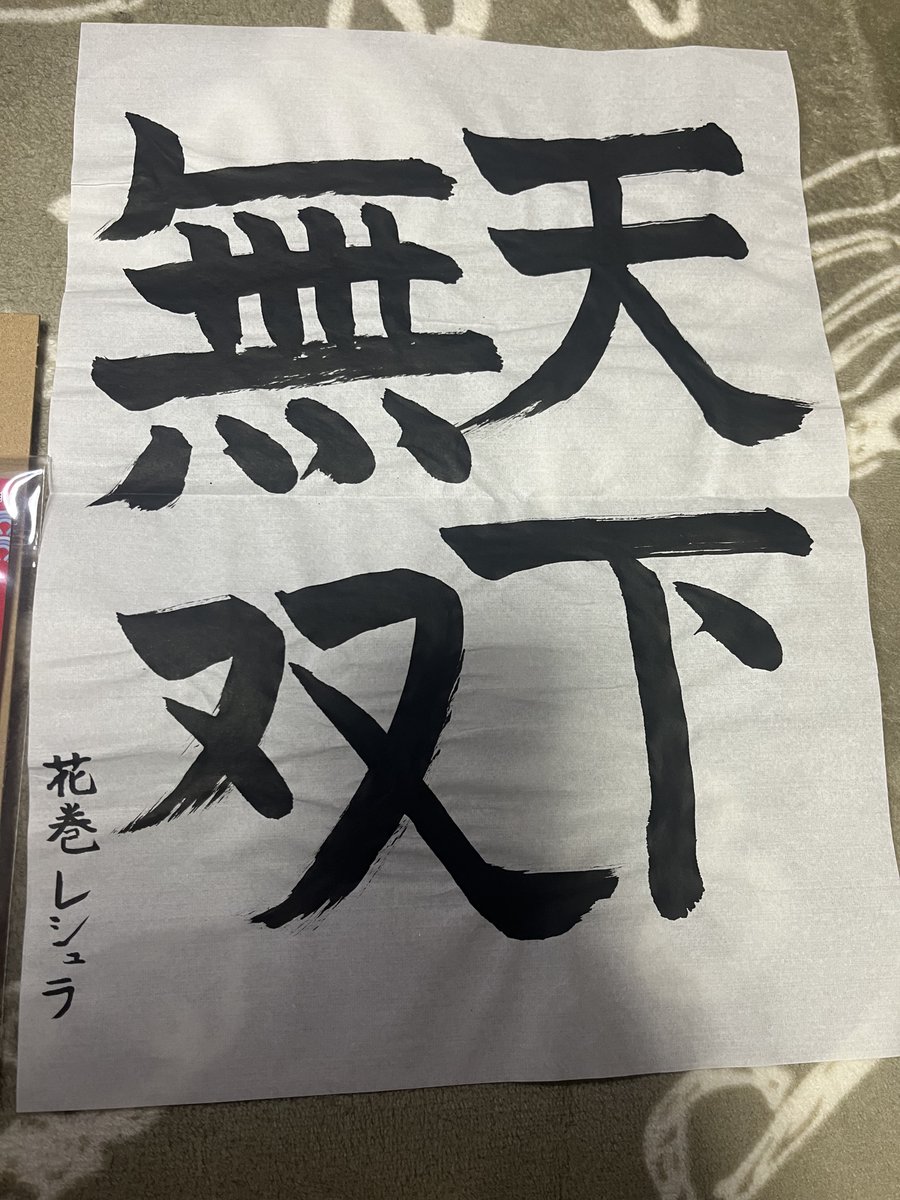 天下
無双
花巻レシュラ